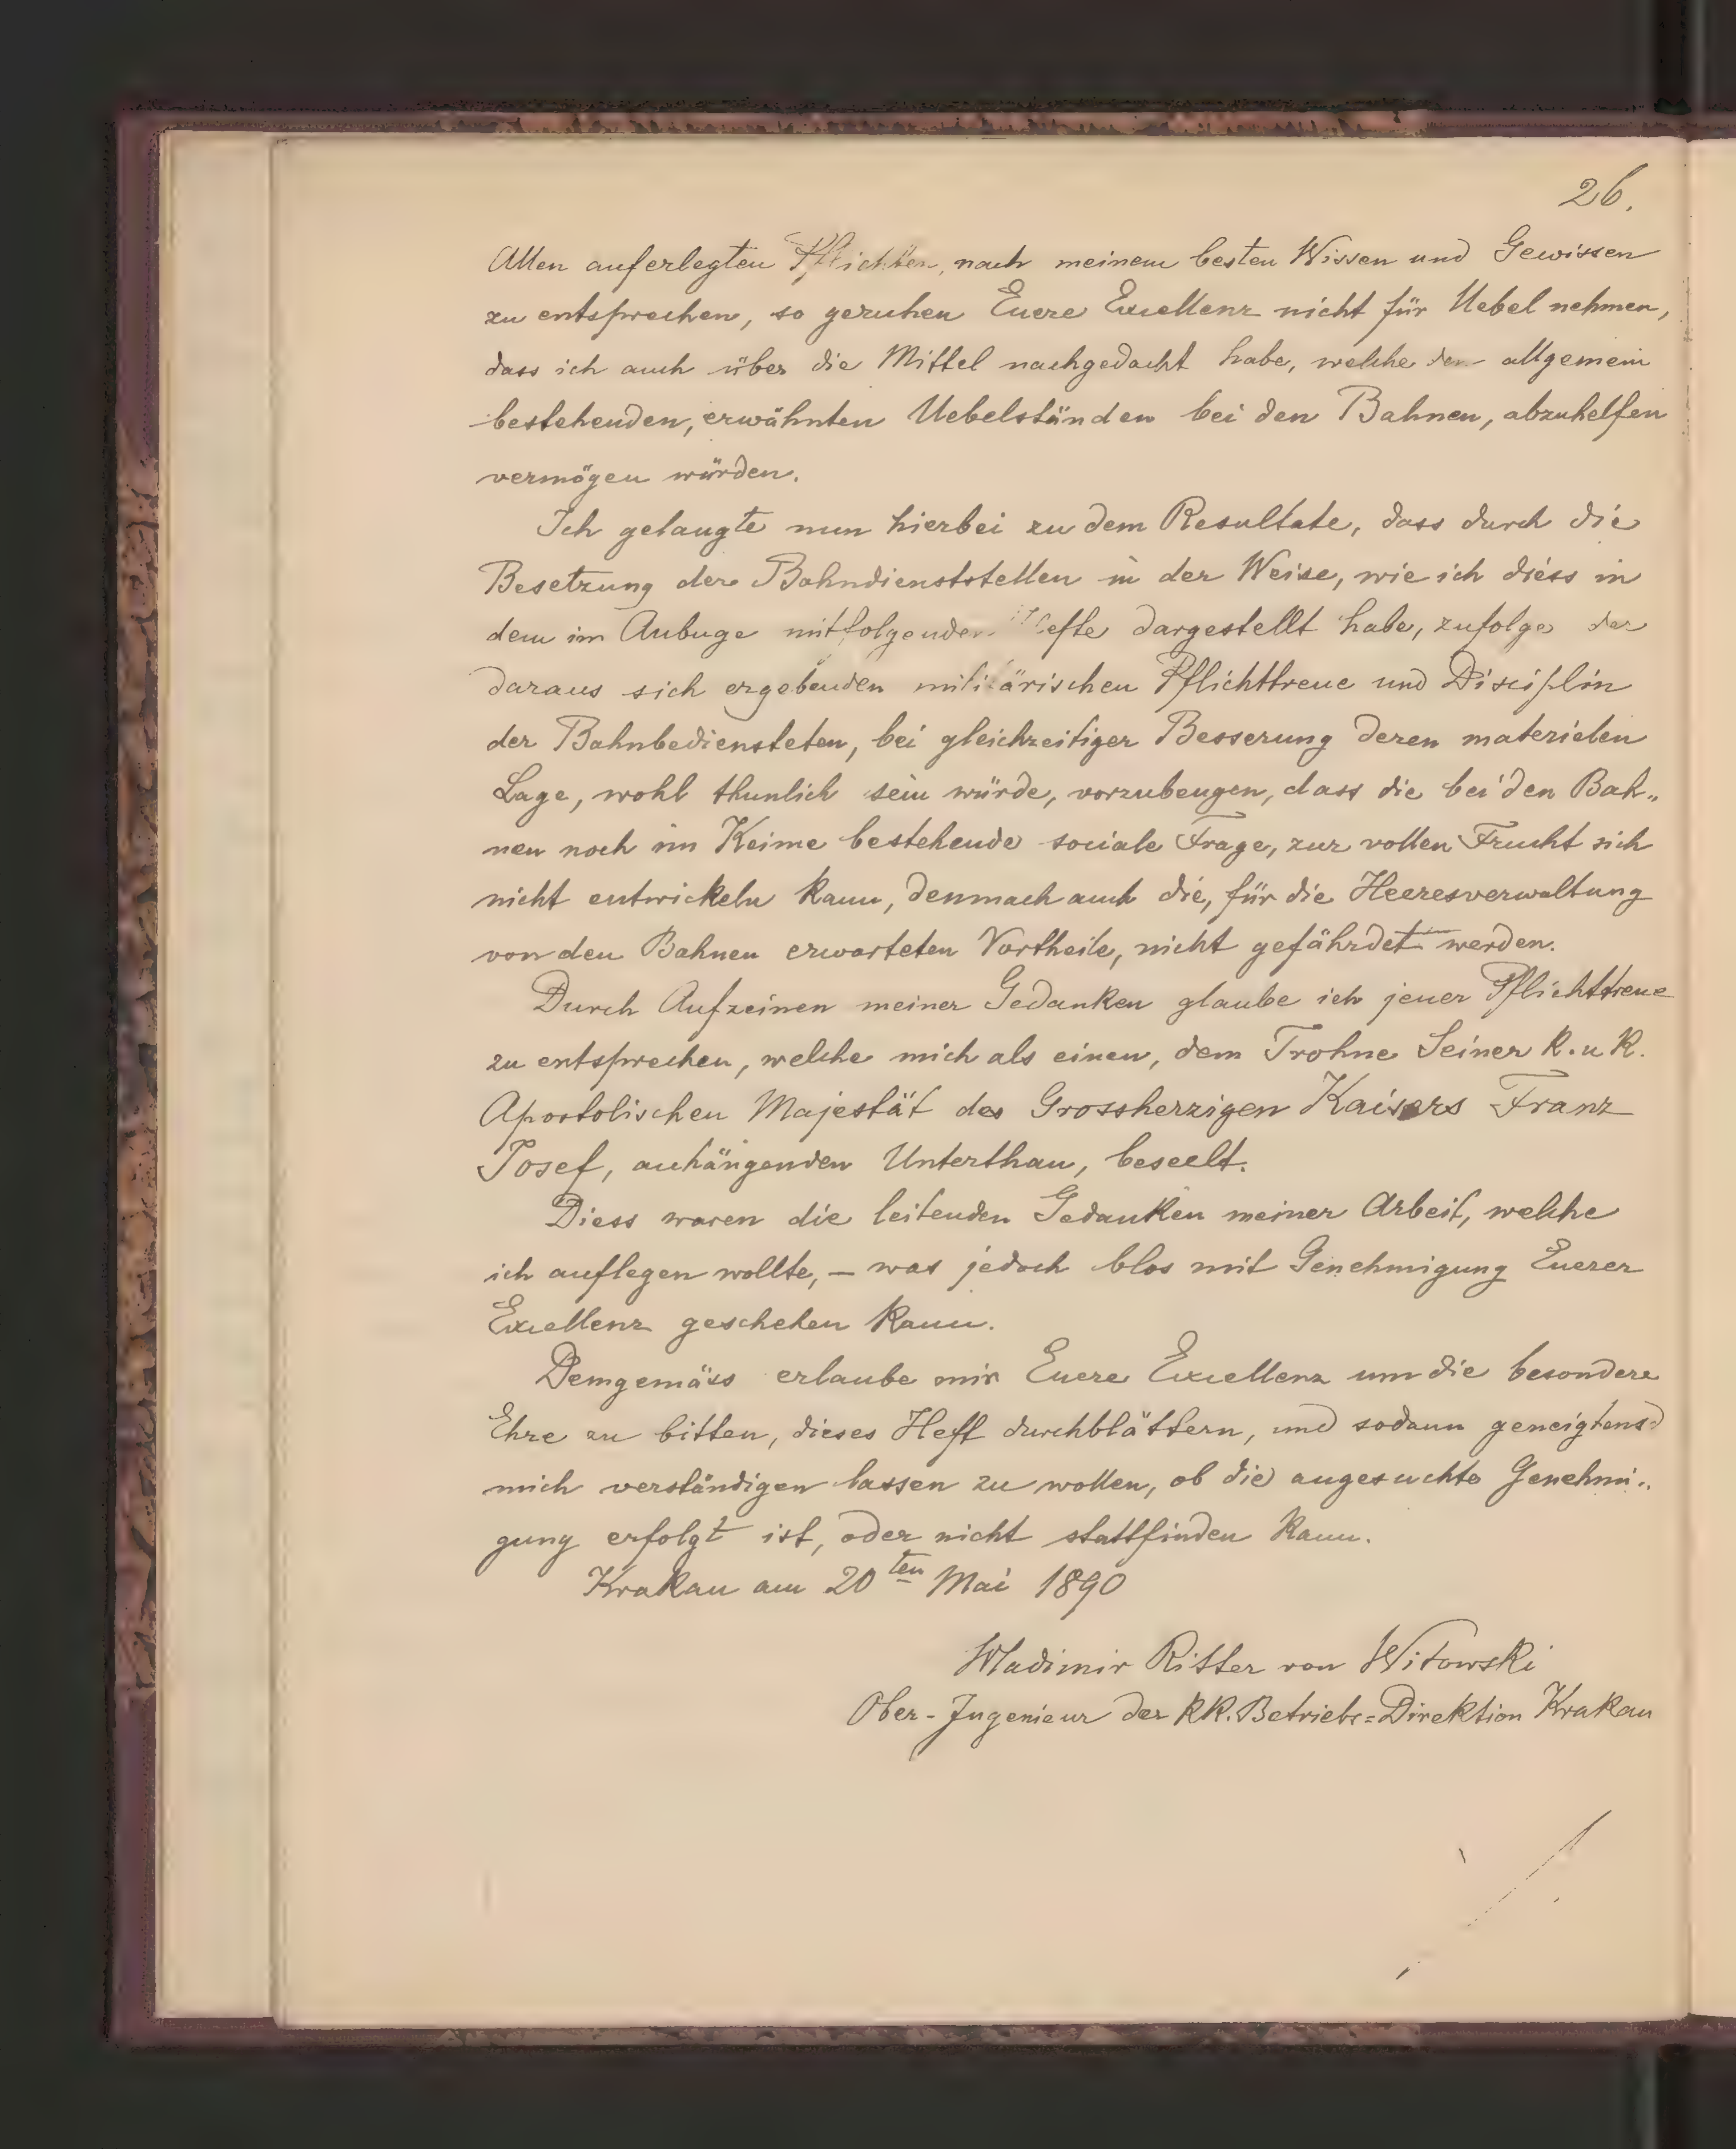 26.
Allen auferlegten Pflichten, nach meinem besten Wissen und Gewissen
zu entsprechen, so geruhen Euere Excellenz nicht für Uebel nehmen,
dass ich auch über die Mittel nachgedacht habe, welche den allgemein
bestehenden, erwähnten Uebelständen bei den Bahnen, abzuhelfen
vermögen würden.
Ich gelangte nun hierbei zu dem Resultate, dass durch die
Besetzung der Bahndienststellen in der Weise, wie ich diess in
dem im Anbuge mitfolgenden Hefte dargestellt habe, zufolge der
daraus sich ergebenden militärischen Pflichttreue und Disciplin
der Bahnbediensteten, bei gleichzeitiger Besserung deren materielen
Lage, wohl thunlich sein würde, vorzubeugen, dass die bei den Bah„
nen noch im Keime bestehende sociale Frage, zur vollen Frucht sich
nicht entwickeln kann, demnach auch die, für die Heeresverwaltung
von den Bahnen erwarteten Vortheile, nicht gefährdet werden.
Durch Aufzeinen meiner Gedanken glaube ich jener Pflichttreue
zu entsprechen, welche mich als einen, dem Trohne Seiner k. u k.
Apostolischen Majestät des Grossherzigen Kaisers Franz
Josef, anhängenden Unterthan, beseelt.
Diess waren die leitenden Gedanken meiner Arbeit, welche
ich auflegen wollte, – was jedoch blos mit Genehmigung Euerer
Excellenz geschehen kann.
Demgemäss erlaube mir Euere Excellenz um die besondere
Ehre zu bitten, dieses Heft durchblättern, und sodann geneigtens
mich verständigen lassen zu wollen, ob die angesuchte Genehmi„
gung erfolgt ist, oder nicht stattfinden kann.
Krakau am 20ten Mai 1890
Wladimir Ritter von Witowski
Ober-Ingenieur der kk. Betriebs=Direktion Krakau